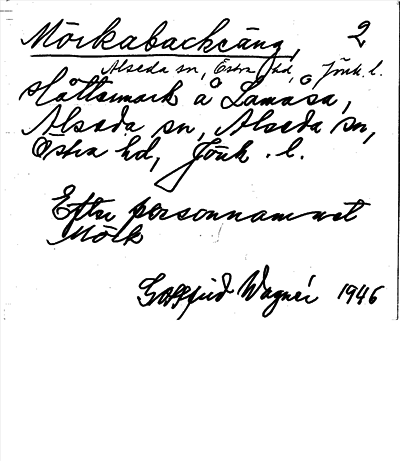 Mörkabackeäng, 2
Alseda sn, Östra hd, Jönk. l.
Slåttermark å Lamåsa,
Alseda sn, Alseda sn,
Östra hd, Jönk. l.
Efter personnamnet
Mörk
Gottfrid Wagnér 1946